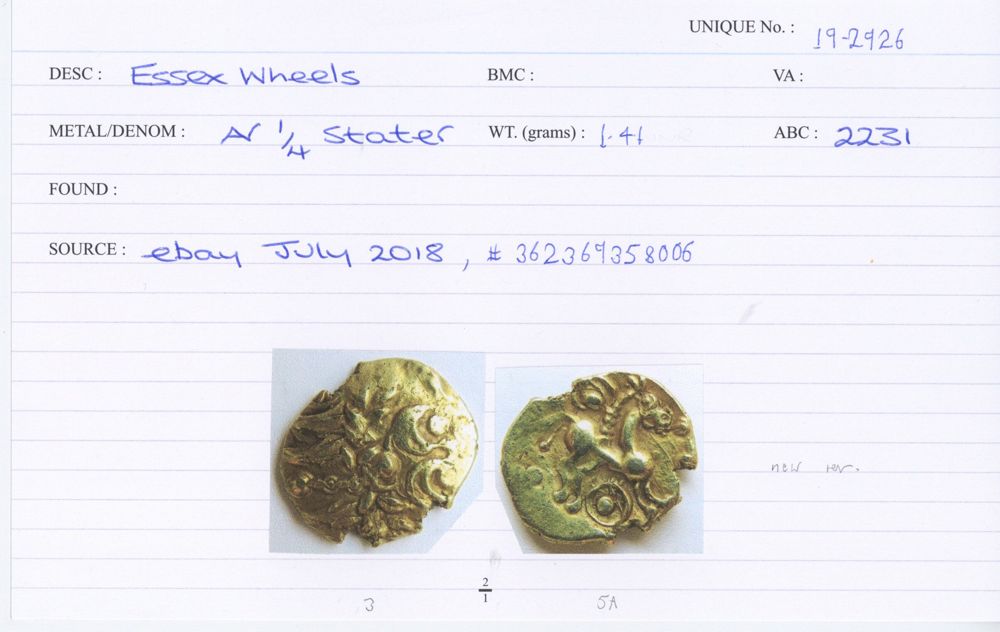 UNIQUE No. : 19-2926
DESC : Essex Wheels BMC : VA :
METAL/DENOM : AV 1/4 Stater WT. (grams) : 1.41 ABC : 2231
FOUND :
SOURCE : ebay July 2018, # 362369358006
new rev.
2/1
3 5A